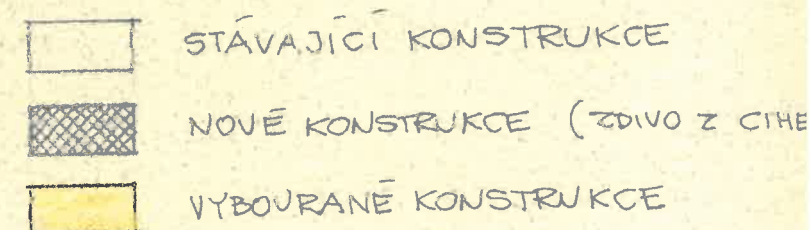 STÁVAJÍCÍ KONSTRUKCE
NOVÉ KONSTRUKCE (ZDIVO Z CIHE
VYBOURANÉ KONSTRUKCE